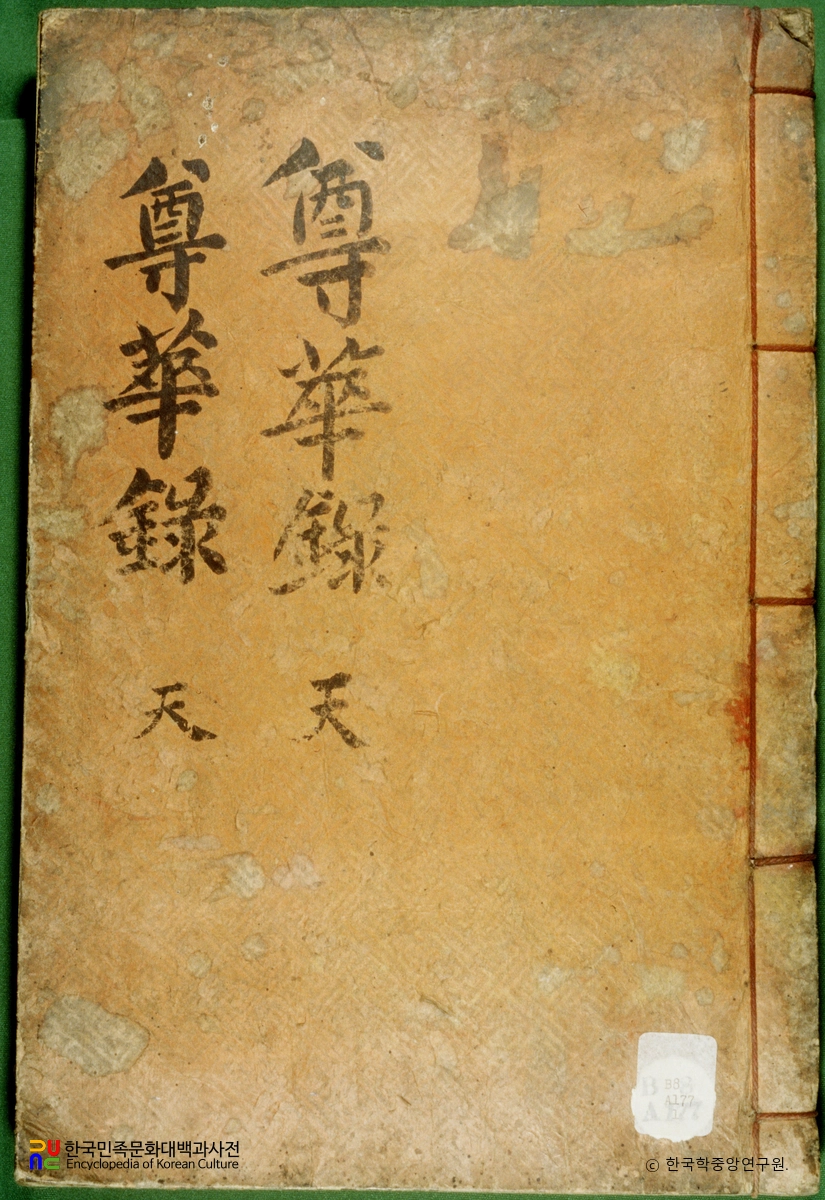 尊華錄 天
尊華錄 天
B8
A177
한국민족문화대백과사전
Encyclopedia of Korean Culture
© 한국학중앙연구원.